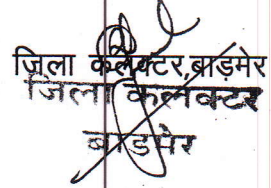 जिला कलैक्टर,बाड़मेर
जिला कलक्टर
बाडमेर